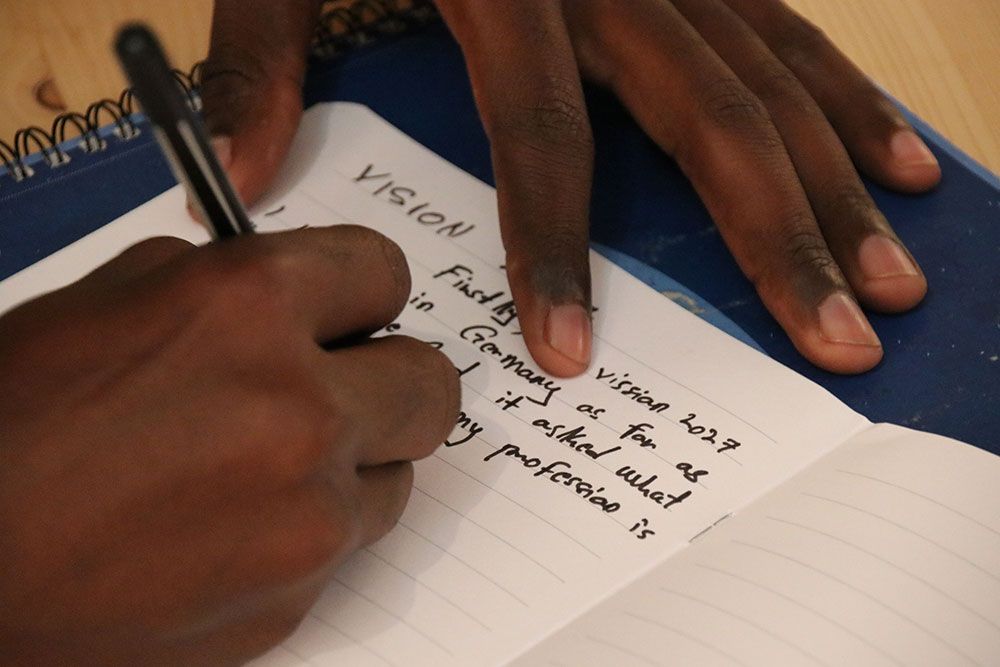 VISION
Firstly, vission 2027
in Germany as far as
it asked what
my profession is